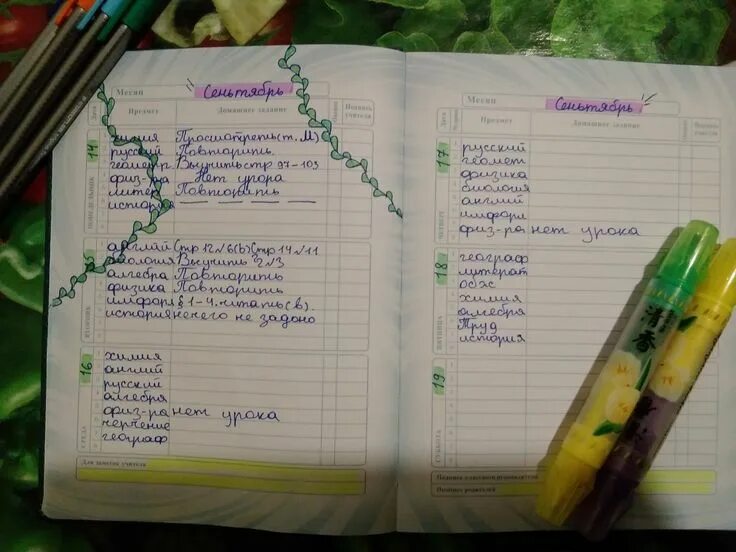 Месяц Сеньтябрь
Дата Предмет Домашнее задание Подпись учителя
ПОНЕДЕЛЬНИК 14
химия Просмотреть(т. М)
русский Повторить.
геометр. Выучить стр 97-103
физ-ра Нет урока
литер Повторить
история — — — —
ВТОРНИК
англий Стр 12 №6(b) Стр 14 №11
биология Выучить 2№3
алгебра Повторить
физика Повторить
информ § 1-4. читать(в).
история нечего не задоно
СРЕДА 16
химия
англий
русский
алгебра
физ-ра нет урока
черчение
географ
Для заметок учителя
Месяц Сеньтябрь
Дата Предмет Домашнее задание
ЧЕТВЕРГ 17
русский
геомет
физика
биология
англий
информ
физ-ра нет урока
ПЯТНИЦА 18
географ
литерат
обж
химия
алгебра
Труд
история
СУББОТА 19
Подпись классного руководителя
Подпись родителей
清香